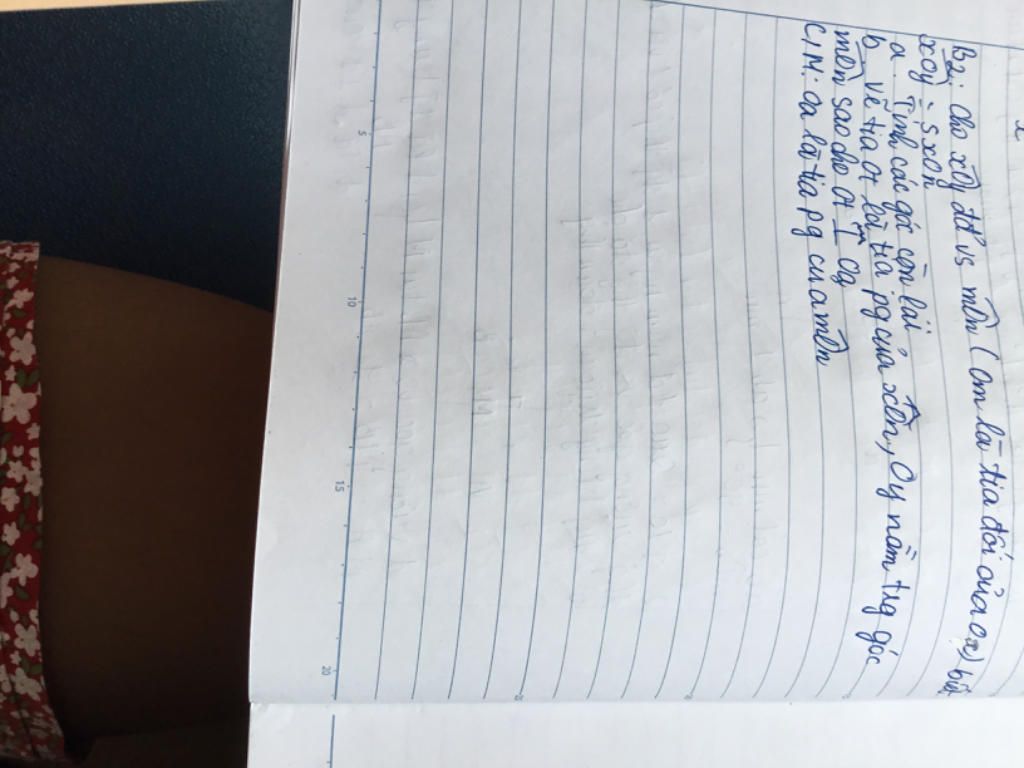 B2: Cho xÔy đđ vs mÔn ( Om là tia đối của Ox) biết
xOy = 5 xOn
a. Tính các góc còn lại
b. Vẽ tia Ot là tia pg của xOn, Oy nằm trg góc
mOn sao cho Ot ⊥ Og
C/M: Oa là tia pg của mÔn
5
10
15
20